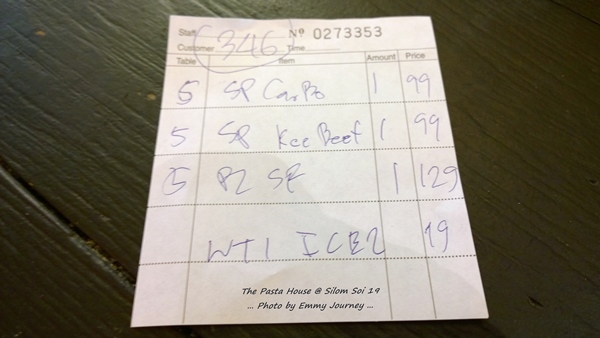 Staff Nº 0273353
Customer 346 Time
Table Item Amount Price
5 SP CarBo 1 99
5 SP Kee Beef 1 99
5 PZ SF 1 129
WT1 ICE2 19
The Pasta House @ Silom Soi 19
... Photo by Emmy Journey ...